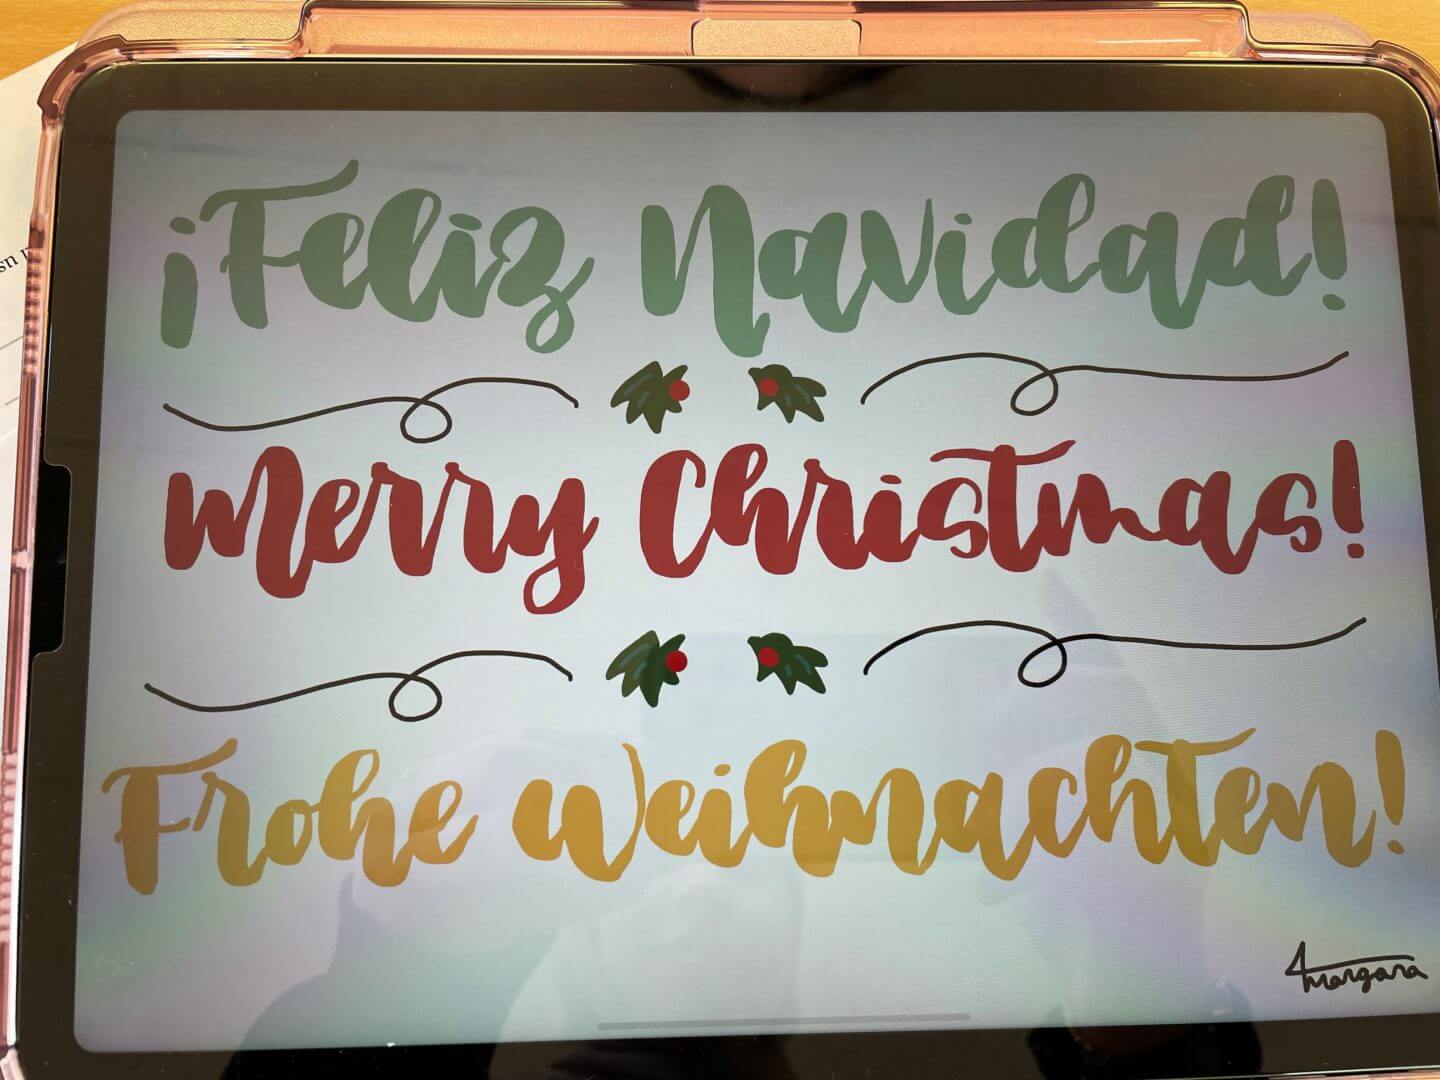 ¡Feliz Navidad!
Merry Christmas!
Frohe Weihnachten!
Margara